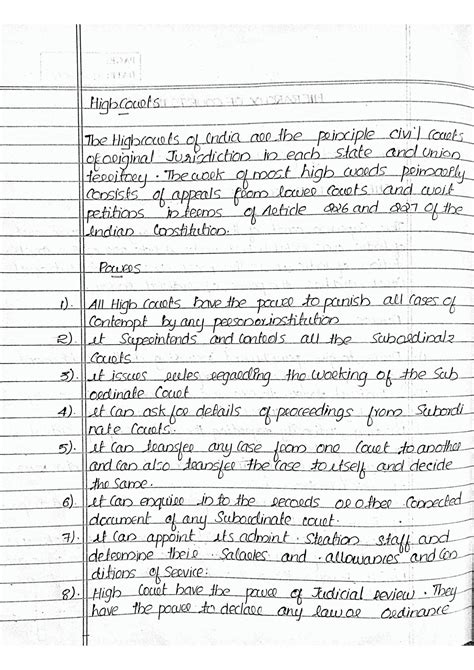 High Courts
The High courts of India are the principle civil courts
of original Jurisdiction in each state and union
territory. The work of most high words primarily
Consists of appeals from lower courts and writ
petitions in terms of Article 226 and 227 of the
Indian Constitution.
Powers
1). All High Courts have the power to punish all cases of
contempt by any person or institution
2). it Superintends and controls all the Subordinal
Courts
3). it issues rules regarding the working of the Sub
ordinate Court
4). it can ask for details of proceedings from Subordi
nate Courts.
5). it can transfer any case from one Court to another
and can also transfer the case to itself and decide
the same.
6). it can enquire in to the records or other Connected
document of any Subordinate court.
7). it can appoint its admint. Stration staff and
determine their Salaries and allowances and Con
ditions of Service:
8). High Court have the power of Judicial review. They
have the power to declare any law or Ordinance